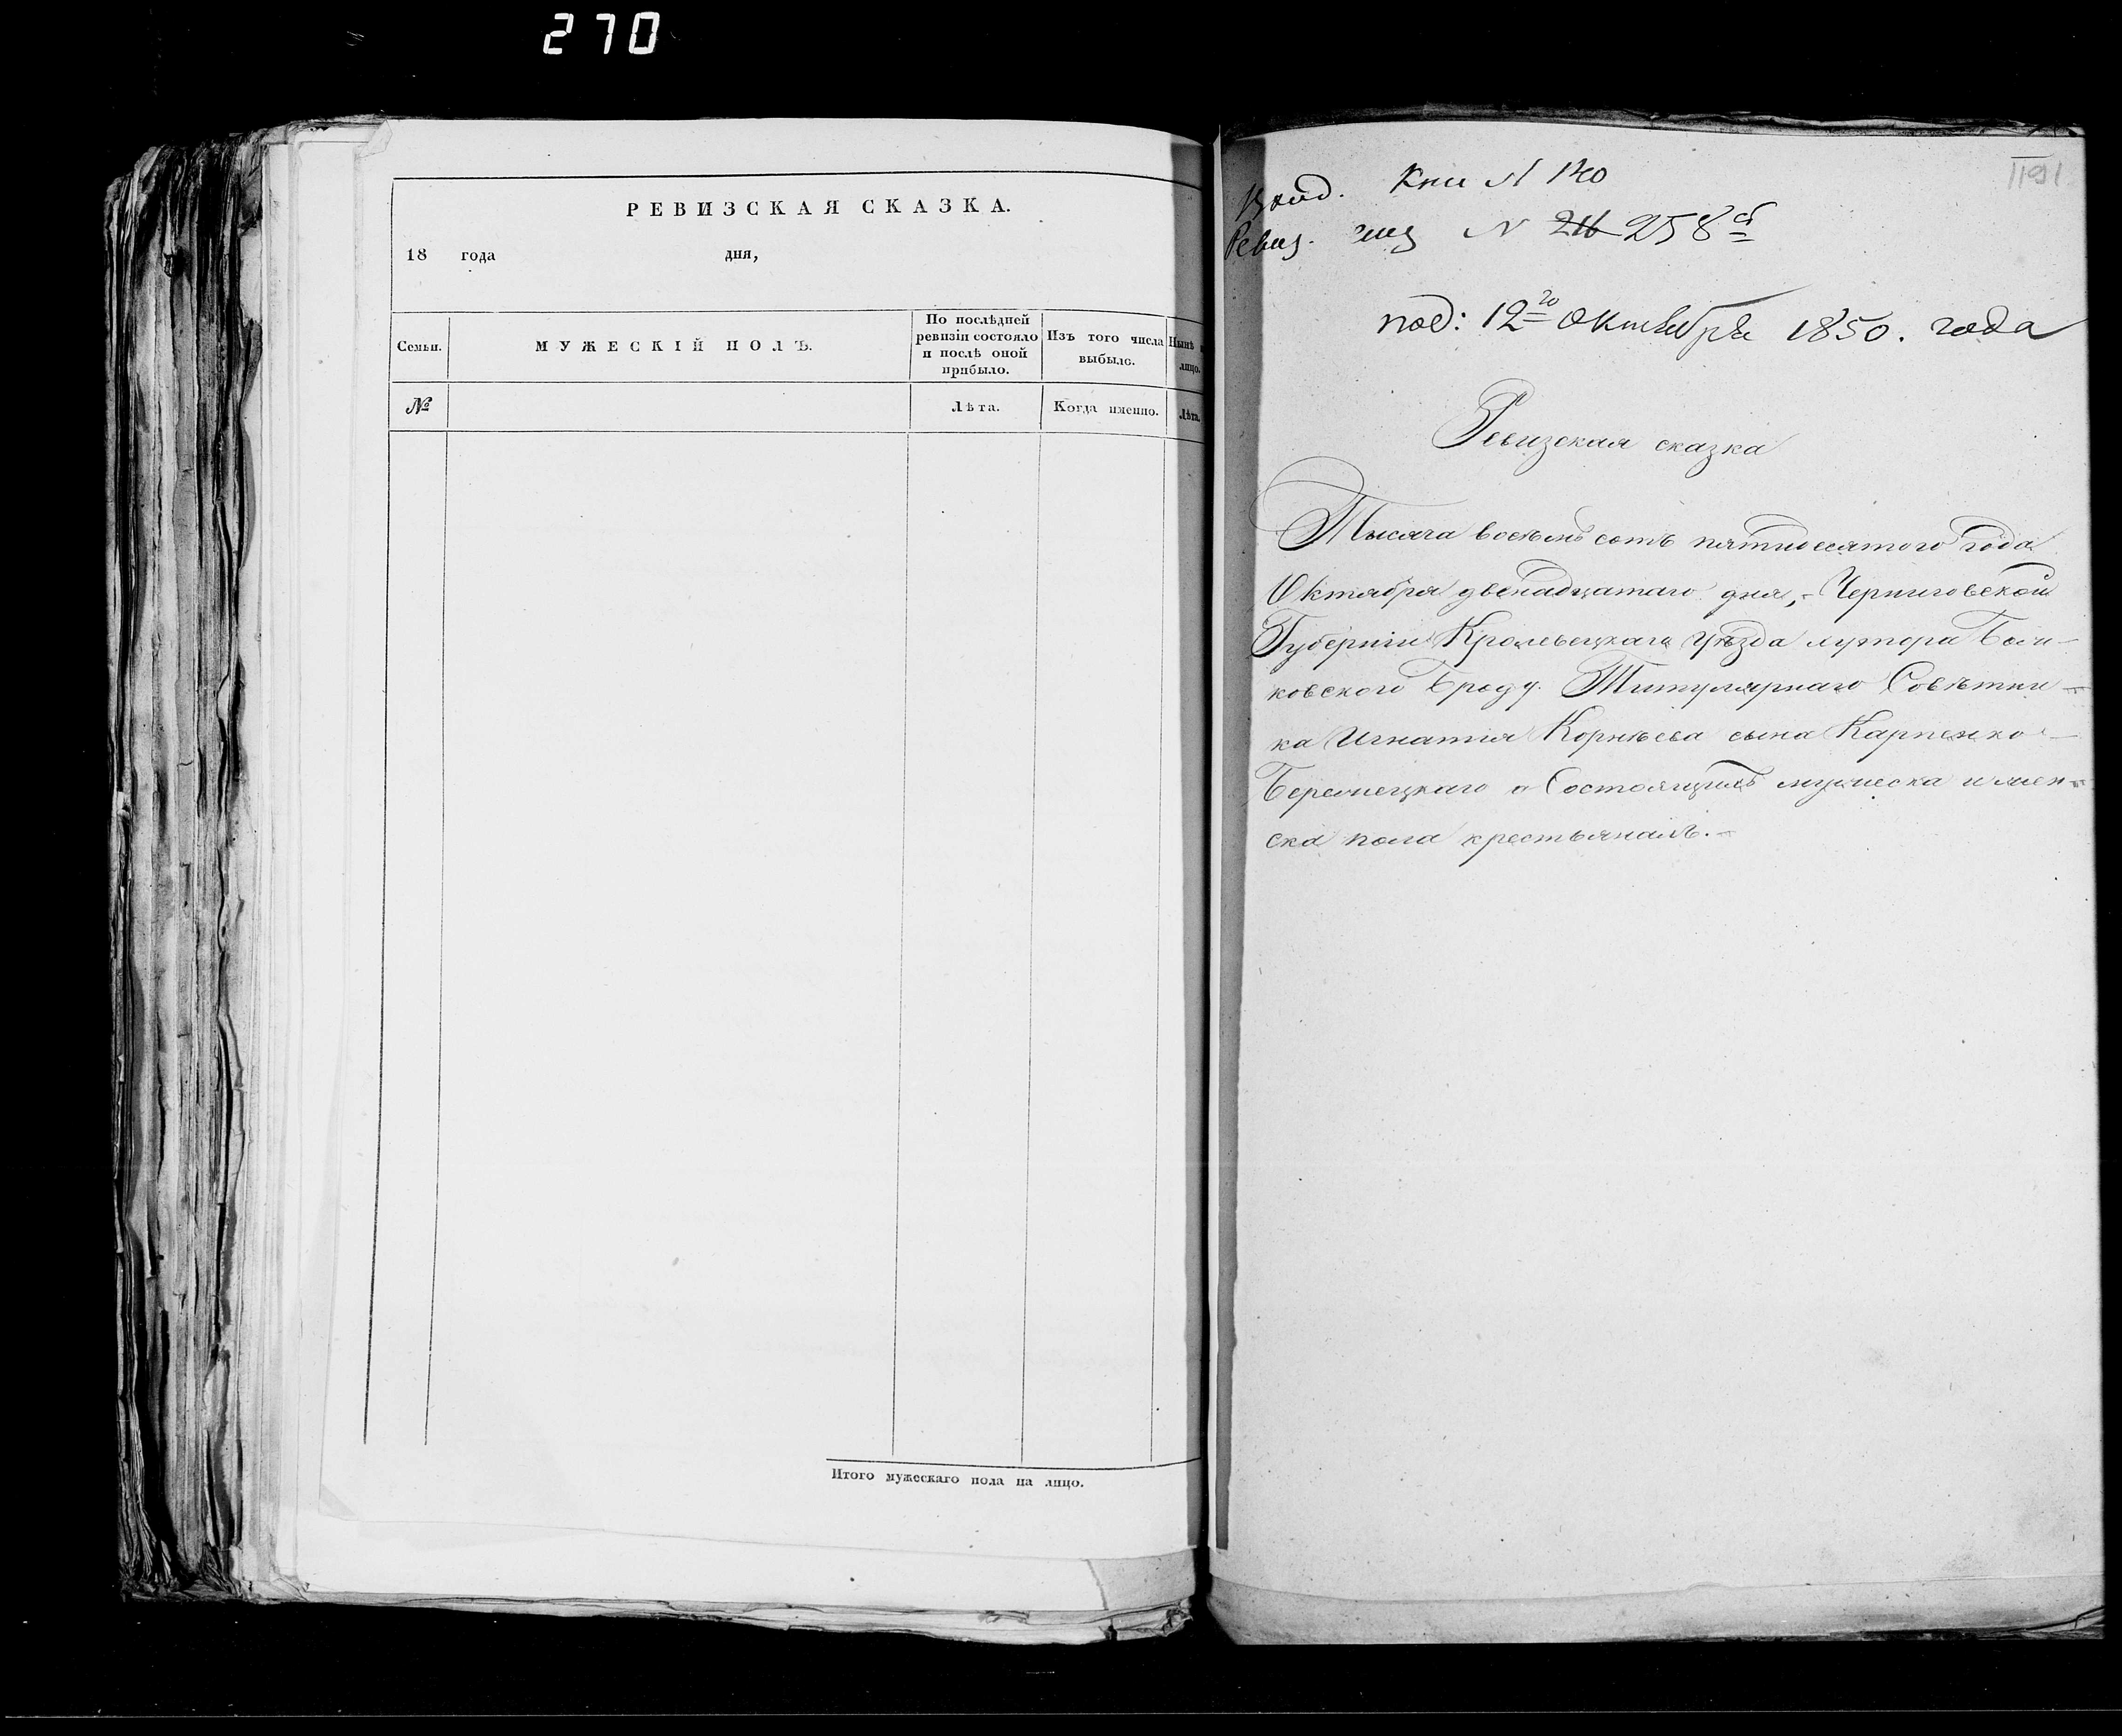 270
РЕВИЗСКАЯ СКАЗКА.
18 года дня,
Семьи.
МУЖЕСКІЙ ПОЛЪ.
По послѣдней
ревизіи состояло
и послѣ оной
прибыло.
Изъ того числа
выбыло.
Нынѣ
лицо.
№
Лѣта.
Когда именно.
Лѣта.
Итого мужескаго пола на лицо.
1191
Кни № 140
Ревиз. № 258
под: 12го Октября 1850. года
Ревизская сказка
Тысяча восемь сотъ пятидесятого года
Октября двенадцатаго дня, Черниговской
Губерніи Кролевецкаго уѣзда хутора
ковского Броду. Титулярнаго Совѣтни-
ка Игнатія Корнѣева сына Карпенко-
о Состоящихъ мужеска и жен-
ска пола крестьянахъ.